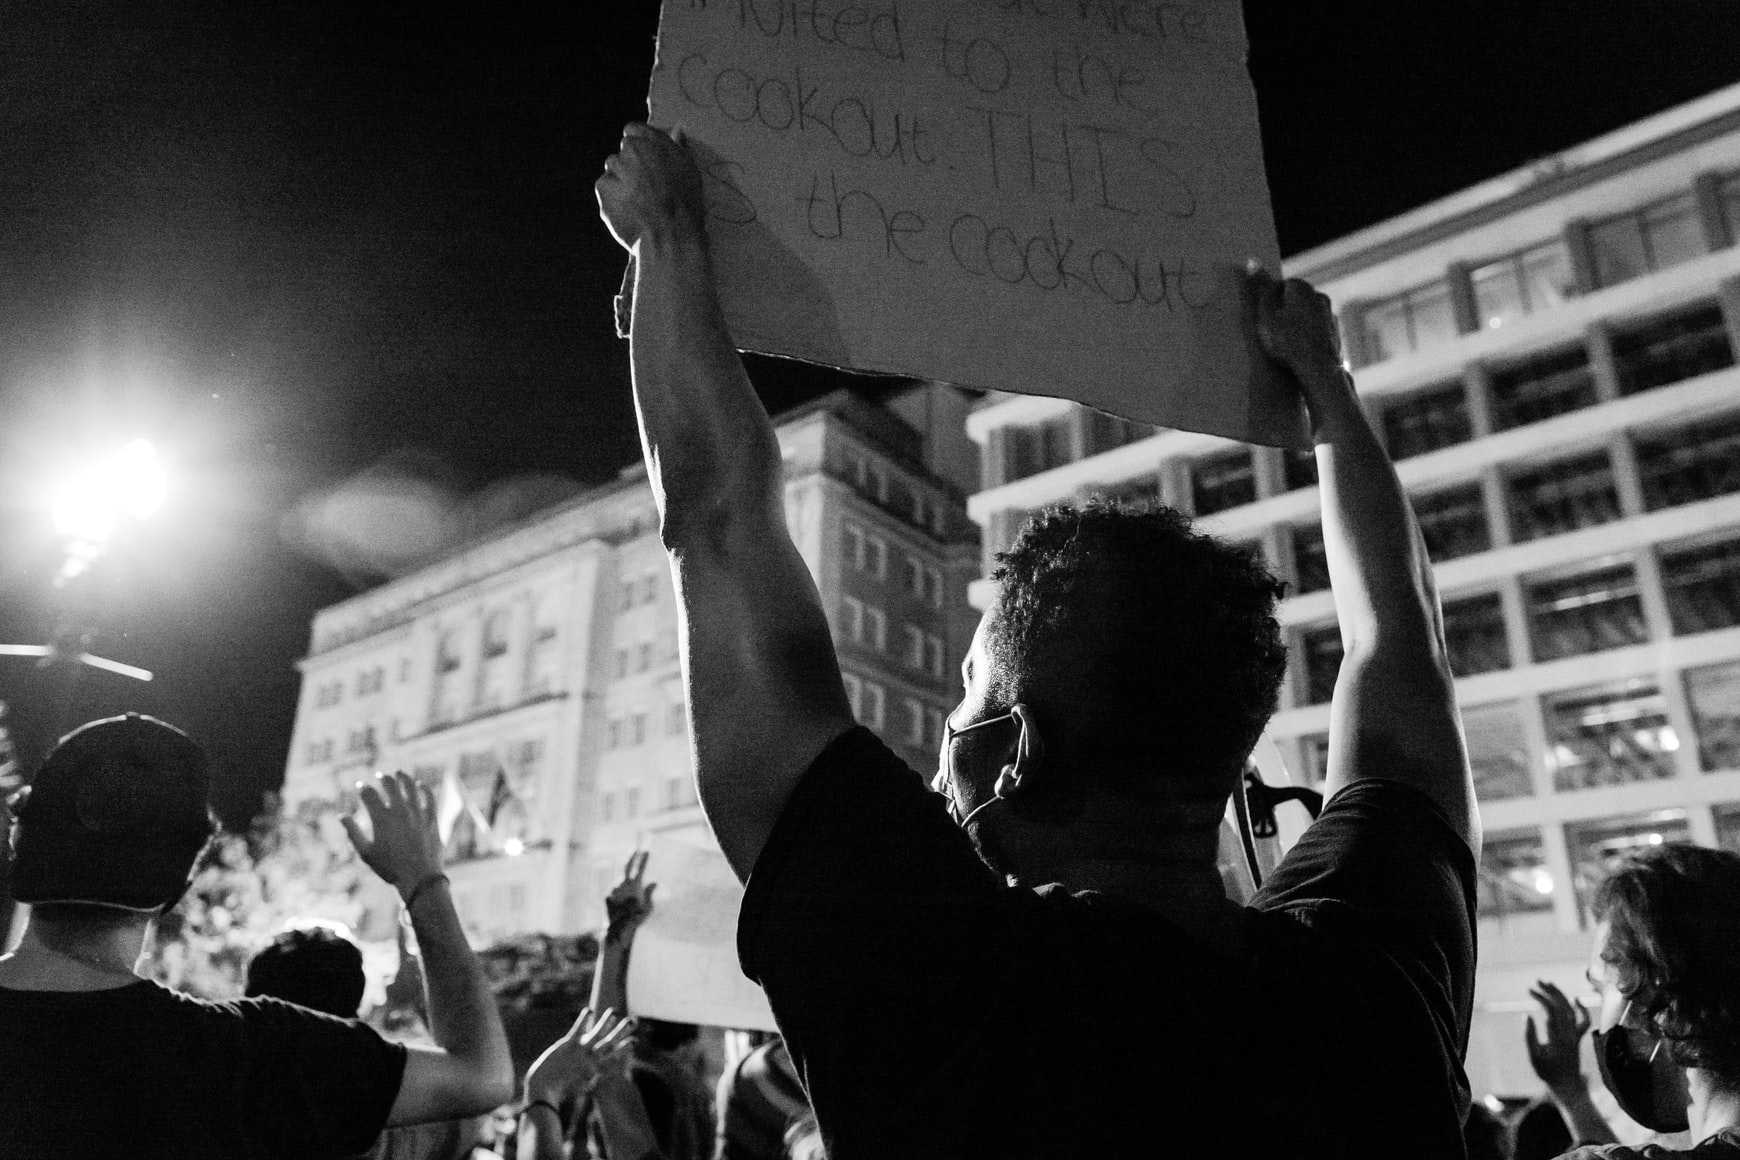 invited were
to the
cookout. THIS
is the cookout